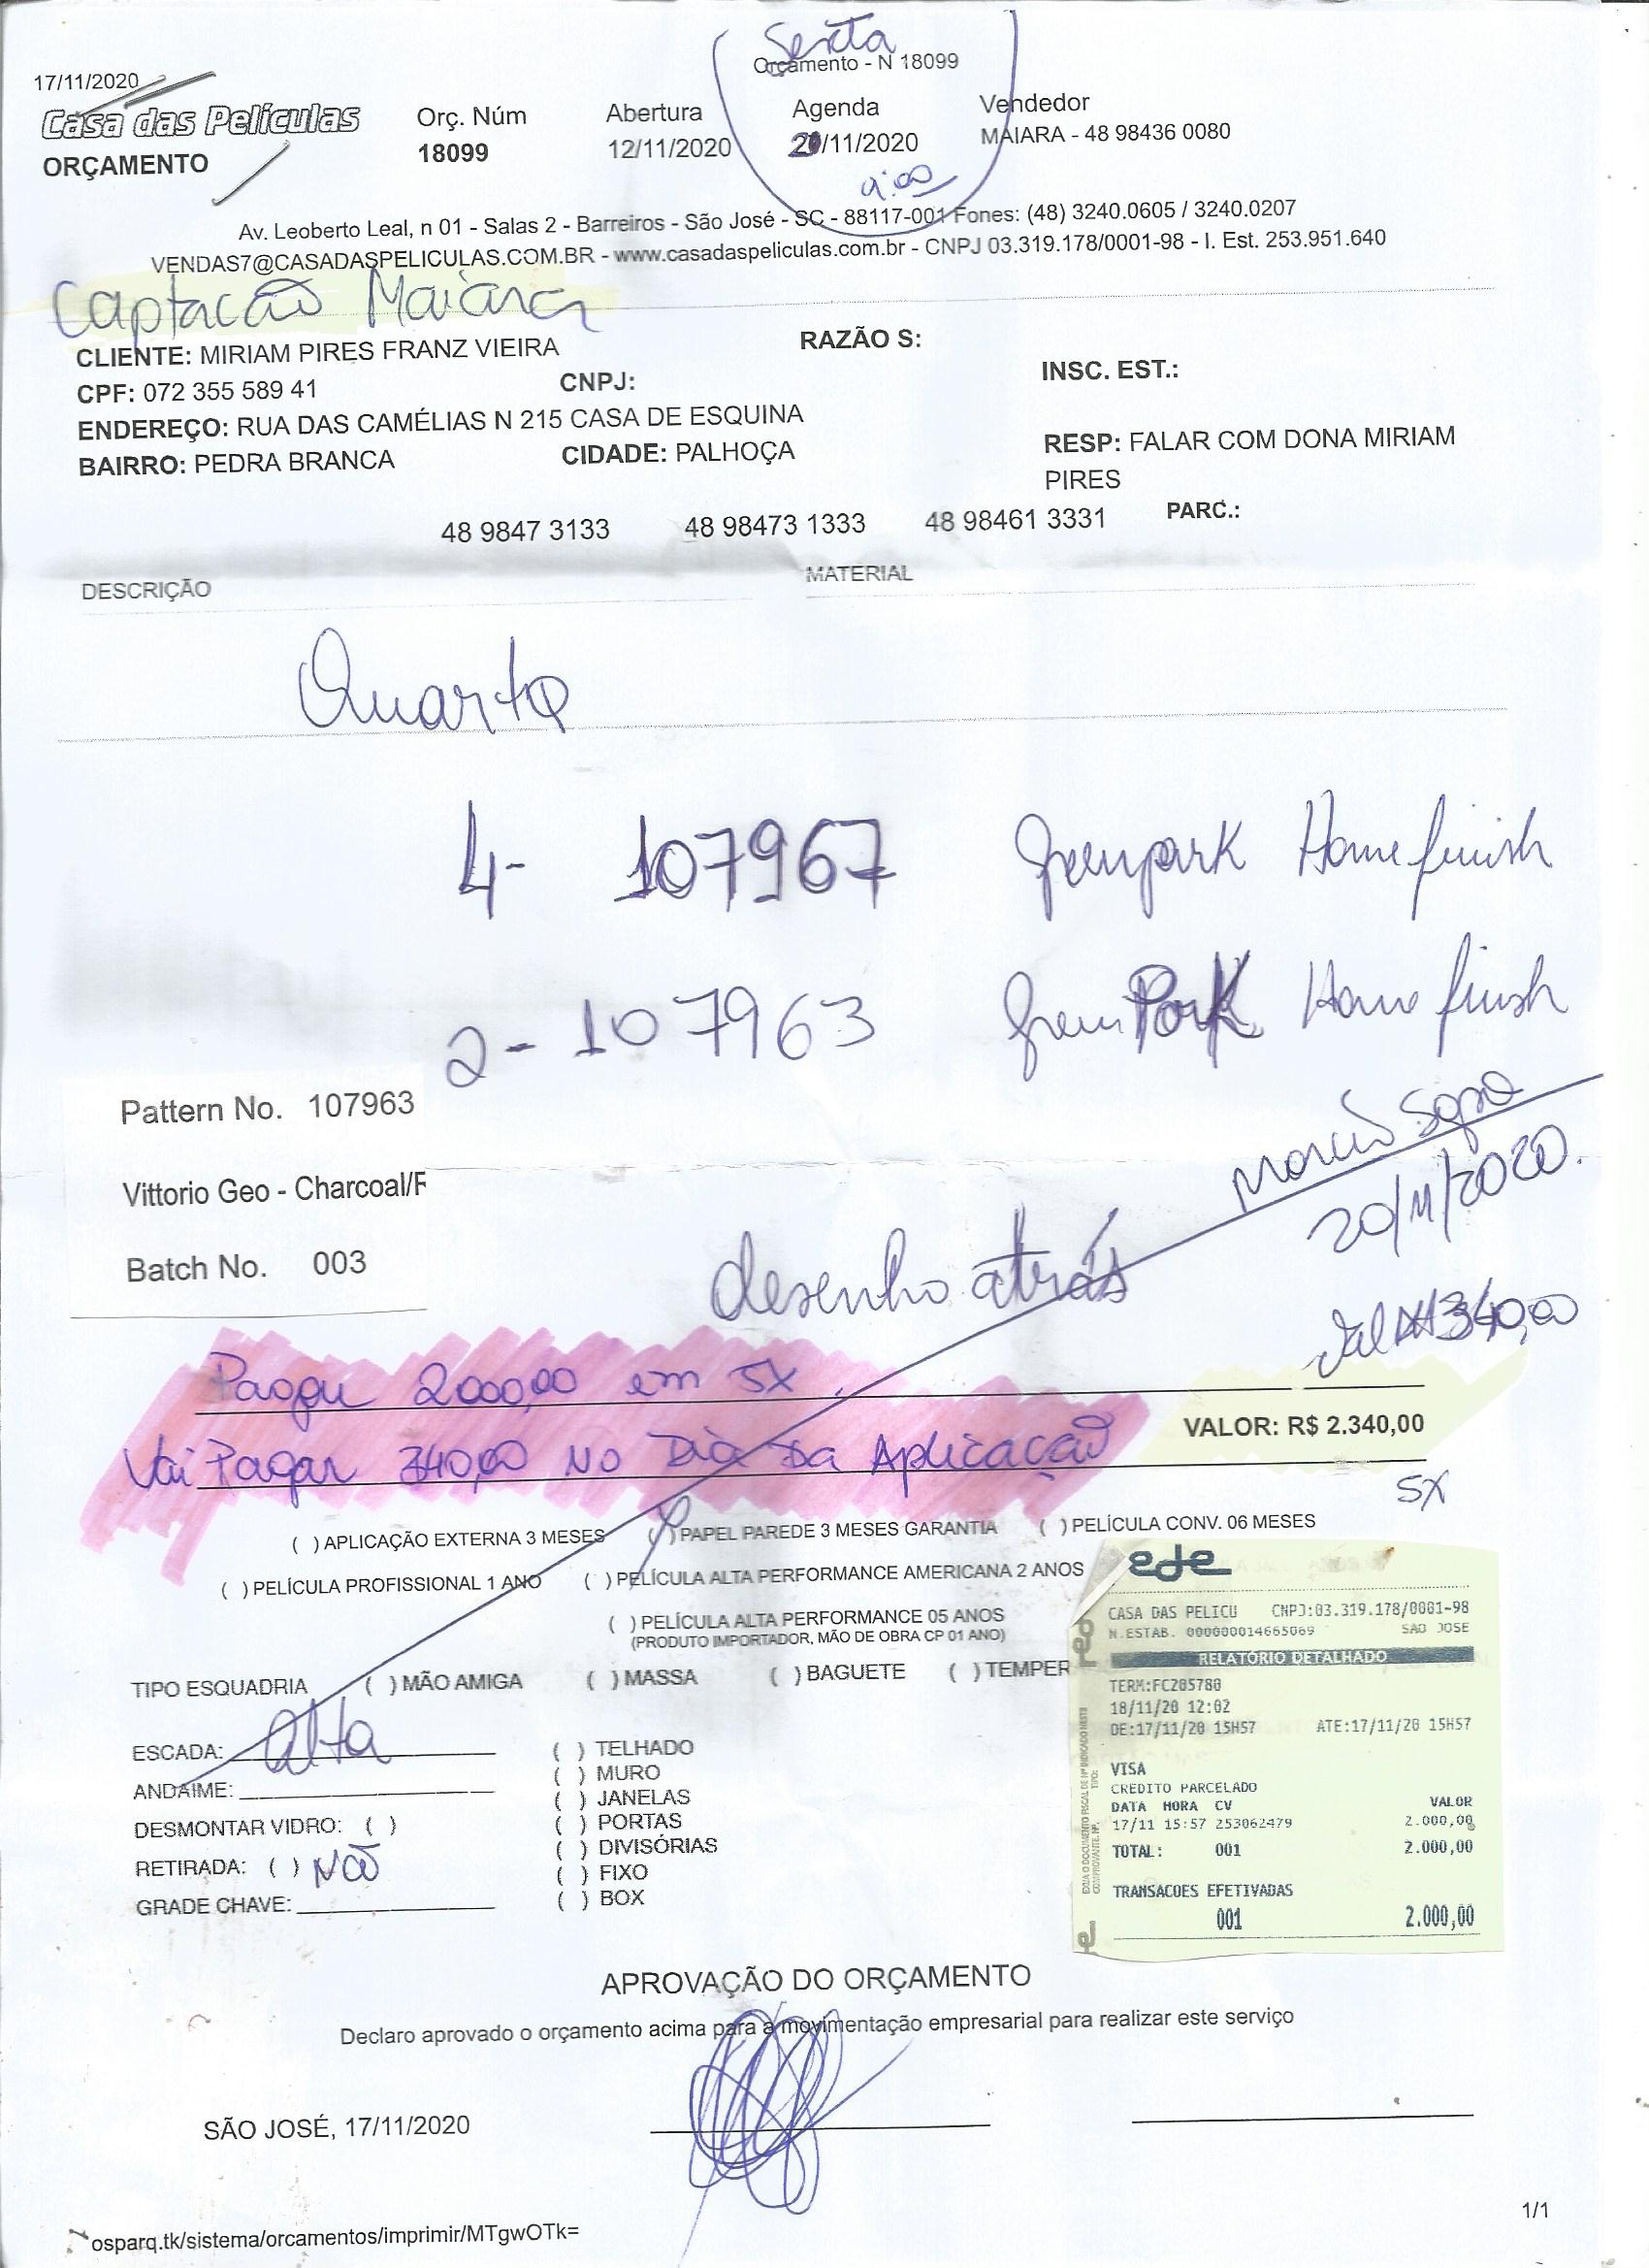 Sexta
17/11/2020
Orçamento - N 18099
Casa das Películas
ORÇAMENTO
Orç. Núm
18099
Abertura
12/11/2020
Agenda
20/11/2020
9:00
Vendedor
MAIARA - 48 98436 0080
Av. Leoberto Leal, n 01 - Salas 2 - Barreiros - São José - SC - 88117-001 Fones: (48) 3240.0605 / 3240.0207
VENDAS7@CASADASPELICULAS.COM.BR - www.casadaspeliculas.com.br - CNPJ 03.319.178/0001-98 - I. Est. 253.951.640
Captacão Maiara
CLIENTE: MIRIAM PIRES FRANZ VIEIRA
RAZÃO S:
CPF: 072 355 589 41
CNPJ:
INSC. EST.:
ENDEREÇO: RUA DAS CAMÉLIAS N 215 CASA DE ESQUINA
BAIRRO: PEDRA BRANCA
CIDADE: PALHOÇA
RESP: FALAR COM DONA MIRIAM
PIRES
48 9847 3133 48 98473 1333 48 98461 3331
PARC.:
DESCRIÇÃO
MATERIAL
Quarto
4- 107967 Greenpark Home finish
2- 107963 Green Park Home finish
Pattern No. 107963
Vittorio Geo - Charcoal/F
Batch No. 003
20/11/2020.
desenho atrás
340,00
Pagou 2000,00 em 5X
VALOR: R$ 2.340,00
Vai Pagar 340,00 NO Dia Da Aplicação
5X
( ) APLICAÇÃO EXTERNA 3 MESES ( ) PAPEL PAREDE 3 MESES GARANTIA ( ) PELÍCULA CONV. 06 MESES
( ) PELÍCULA PROFISSIONAL 1 ANO ( ) PELÍCULA ALTA PERFORMANCE AMERICANA 2 ANOS
( ) PELÍCULA ALTA PERFORMANCE 05 ANOS
(PRODUTO IMPORTADOR, MÃO DE OBRA CP 01 ANO)
TIPO ESQUADRIA ( ) MÃO AMIGA ( ) MASSA ( ) BAGUETE ( ) TEMPER
ESCADA: alta
ANDAIME:
DESMONTAR VIDRO: ( )
RETIRADA: ( ) NÃO
GRADE CHAVE:
( ) TELHADO
( ) MURO
( ) JANELAS
( ) PORTAS
( ) DIVISÓRIAS
( ) FIXO
( ) BOX
CASA DAS PELICU CNPJ:03.319.178/0001-98
N.ESTAB. 000000014665069 SAO JOSE
RELATÓRIO DETALHADO
TERM:FC205780
18/11/20 12:02
DE:17/11/20 15H57 ATE:17/11/20 15H57
VISA
CREDITO PARCELADO
DATA HORA CV VALOR
17/11 15:57 253062479 2.000,00
TOTAL: 001 2.000,00
TRANSACOES EFETIVADAS
001 2.000,00
APROVAÇÃO DO ORÇAMENTO
Declaro aprovado o orçamento acima para a movimentação empresarial para realizar este serviço
SÃO JOSÉ, 17/11/2020
1/1
osparq.tk/sistema/orcamentos/imprimir/MTgwOTk=